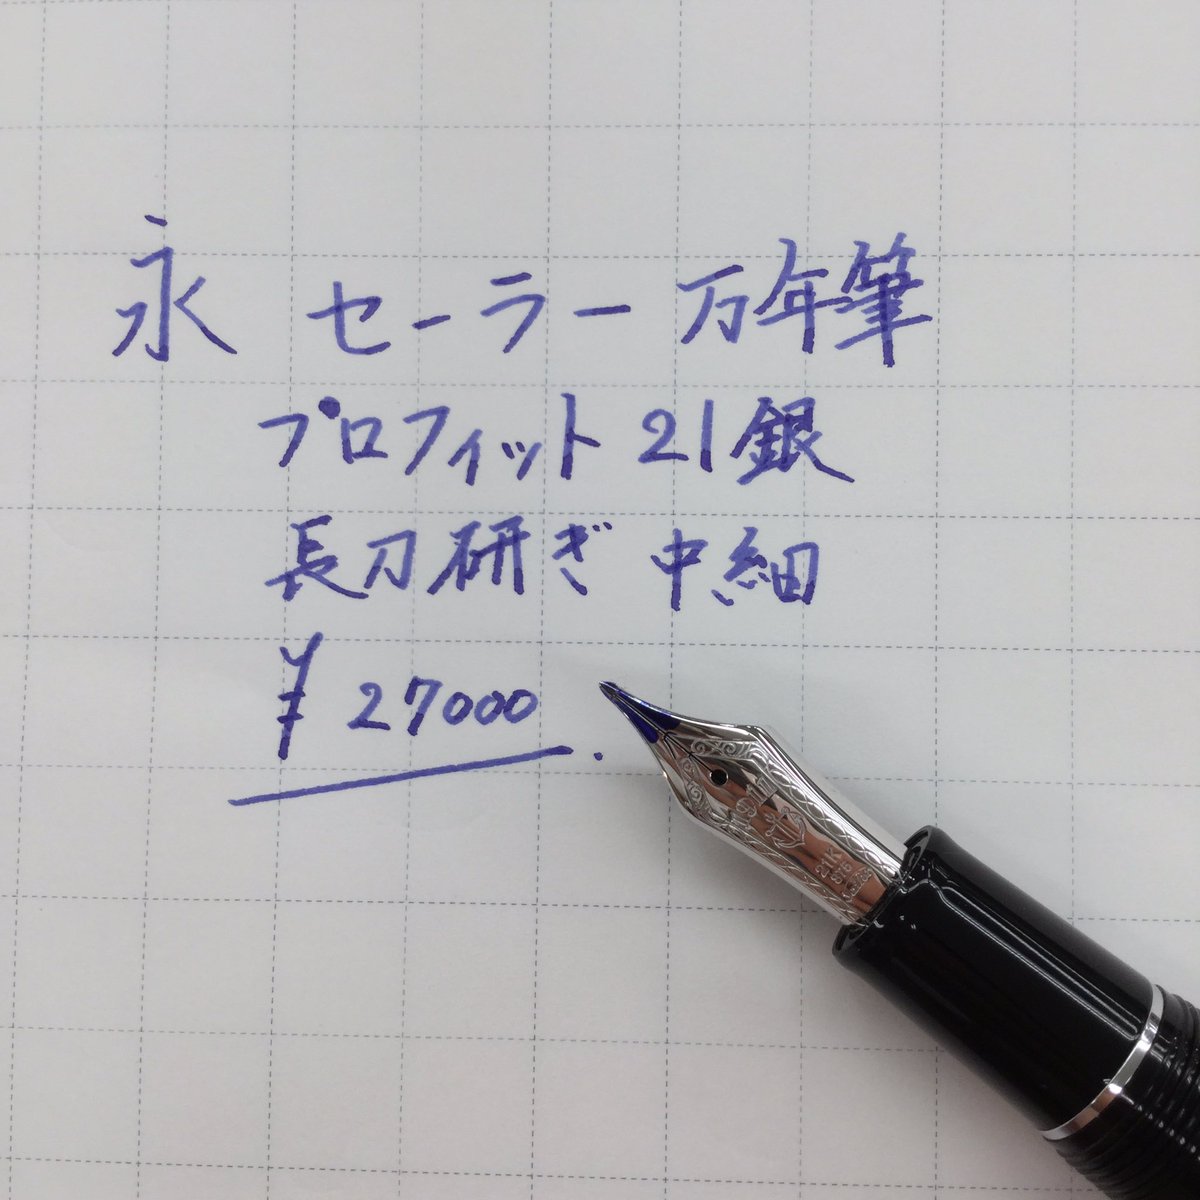 永 セーラー万年筆
プロフィット21銀
長刀研ぎ 中細
¥27000
1911
21K
875